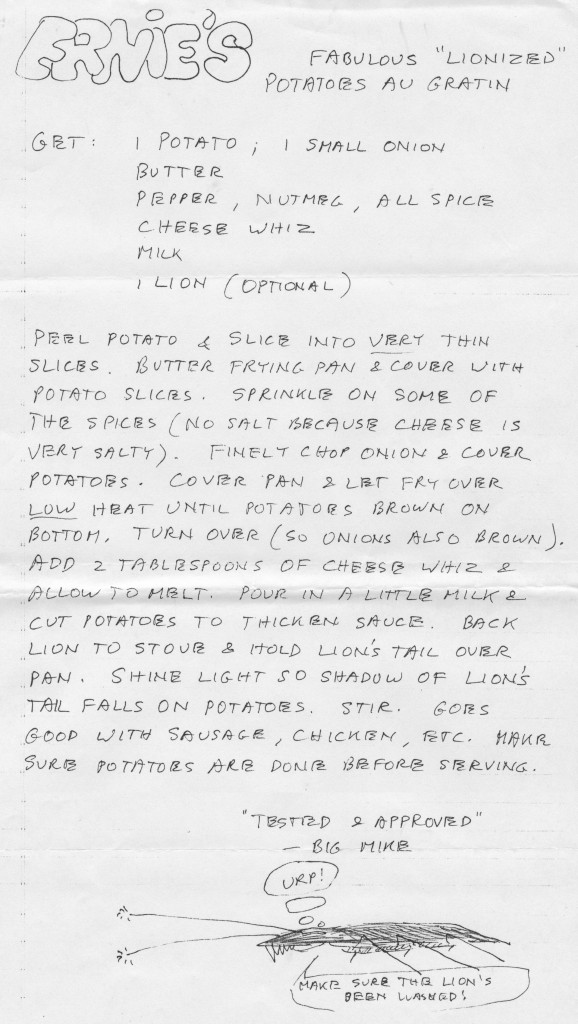 ERNIE'S
FABULOUS "LIONIZED"
POTATOES AU GRATIN
GET: 1 POTATO; 1 SMALL ONION
BUTTER
PEPPER, NUTMEG, ALL SPICE
CHEESE WHIZ
MILK
1 LION (OPTIONAL)
PEEL POTATO & SLICE INTO VERY THIN
SLICES. BUTTER FRYING PAN & COVER WITH
POTATO SLICES. SPRINKLE ON SOME OF
THE SPICES (NO SALT BECAUSE CHEESE IS
VERY SALTY). FINELY CHOP ONION & COVER
POTATOES. COVER PAN & LET FRY OVER
LOW HEAT UNTIL POTATOES BROWN ON
BOTTOM. TURN OVER (SO ONIONS ALSO BROWN).
ADD 2 TABLESPOONS OF CHEESE WHIZ &
ALLOW TO MELT. POUR IN A LITTLE MILK &
CUT POTATOES TO THICKEN SAUCE. BACK
LION TO STOVE & HOLD LION'S TAIL OVER
PAN. SHINE LIGHT SO SHADOW OF LION'S
TAIL FALLS ON POTATOES. STIR. GOES
GOOD WITH SAUSAGE, CHICKEN, ETC. MAKE
SURE POTATOES ARE DONE BEFORE SERVING.
"TESTED & APPROVED"
— BIG MIKE
URP!
MAKE SURE THE LION'S
BEEN WASHED!